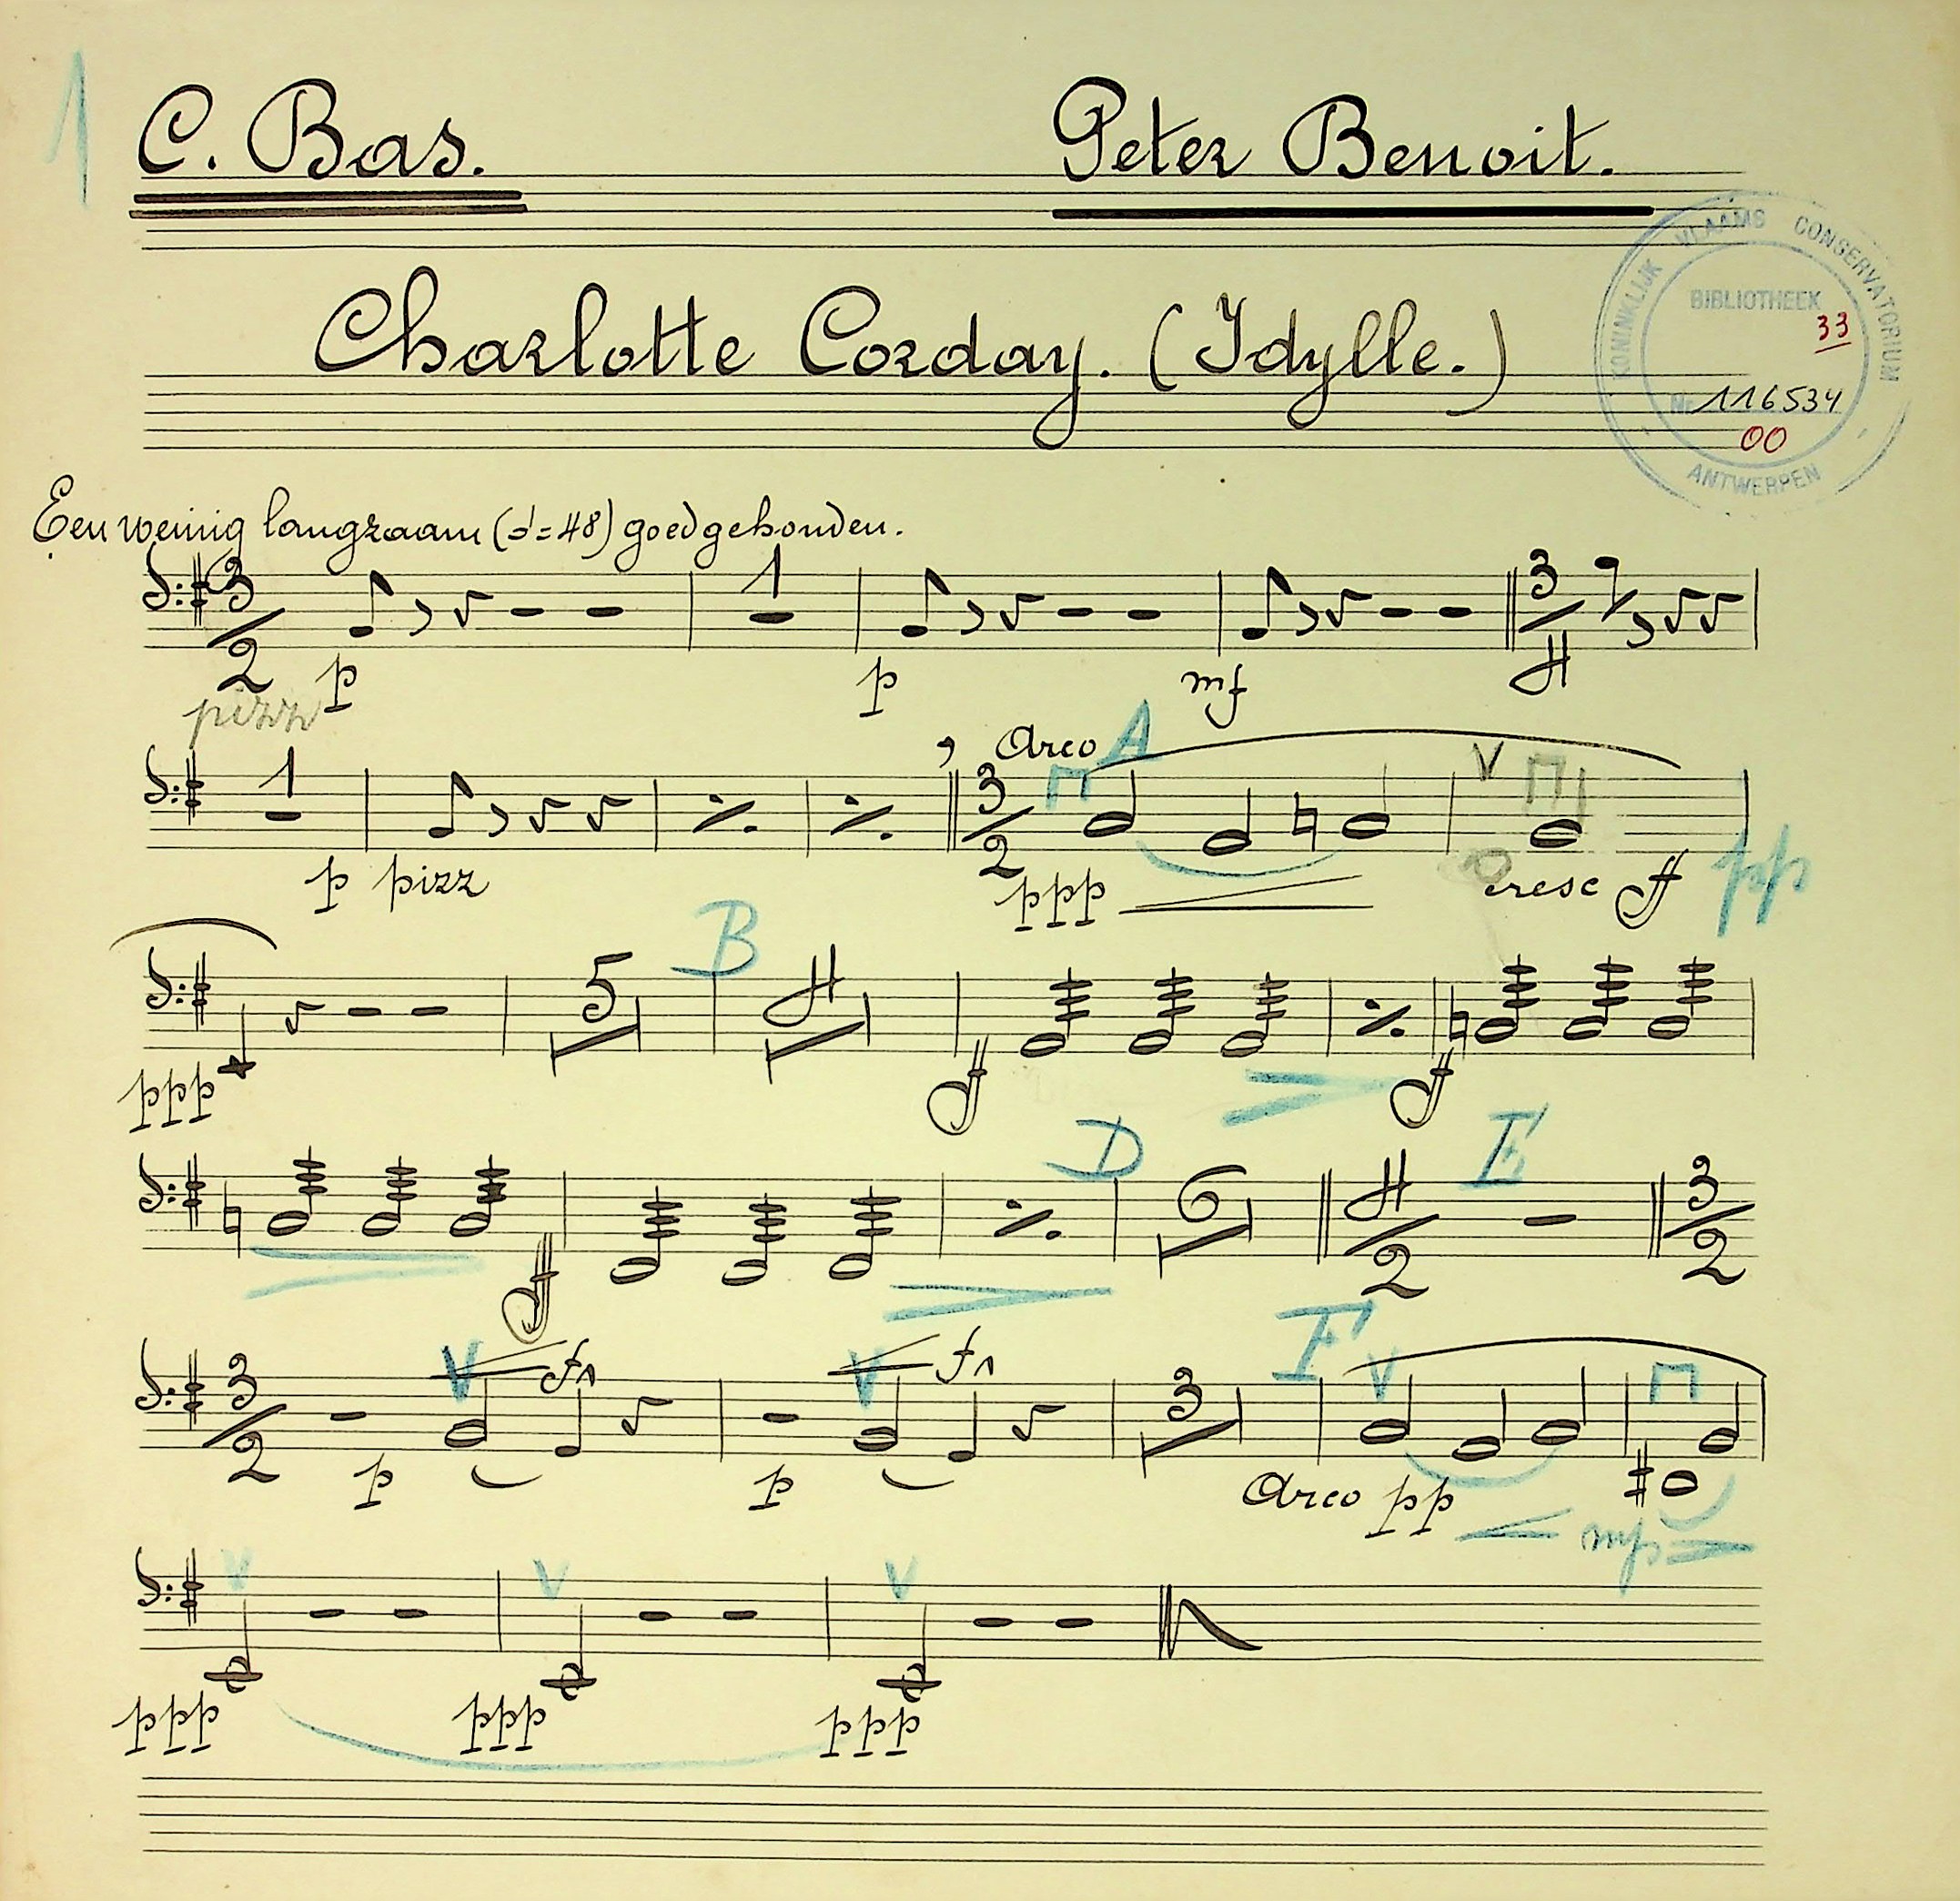 1
C. Bas. Peter Benoit.
KONINKLIJK VLAAMS CONSERVATORIUM
BIBLIOTHEEK
33
Nr 116534
00
ANTWERPEN
Charlotte Corday. (Idylle.)
Een weinig langzaam (𝅗𝅥=48) goed gehouden.
3/2 1 3/4
p p mf
pizz
1 Arco A 3/2
p pizz ppp cresc f pp
5 B 4
ppp f f
D 6 4/2 E 3/2
f
3/2 f f 3 F
p p Arco pp mp
ppp ppp ppp